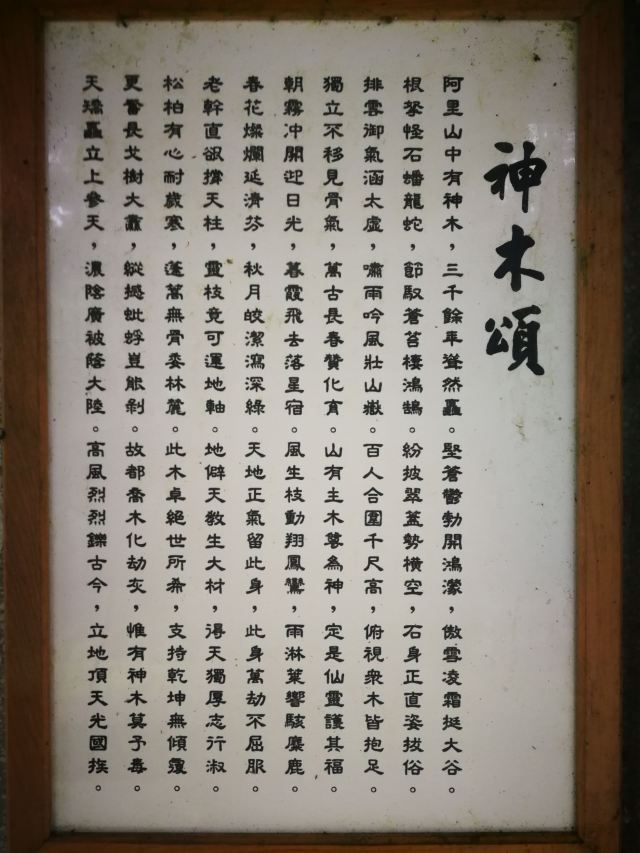 神木頌
阿里山中有神木，三千餘年聳然矗。堅蒼鬱勃開鴻濛，傲雪凌霜挺大谷。
根拏怪石蟠龍蛇，節馭蒼苔棲鴻鵠。紛披翠蓋勢橫空，石身正直姿拔俗。
排雲御氣涵太虛，嘯雨吟風壯山嶽。百人合圍千尺高，俯視眾木皆抱足。
獨立不移見骨氣，萬古長春贊化育。山有主木尊為神，定是仙靈護其福。
朝霧冲開迎日光，暮霞飛去落星宿。風生枝動翔鳳鸞，雨淋葉響駭麋鹿。
春花燦爛延濟芬，秋月皎潔瀉深綠。天地正氣留此身，此身萬劫不屈服。
老幹直欲撐天柱，靈枝竟可運地軸。地僻天教生大材，得天獨厚志行淑。
松柏有心耐歲寒，蓬蒿無骨委林麓。此木卓絕世所希，支持乾坤無傾覆。
更嘗長戈樹大纛，縱撼蚍蜉豈能剝。故都喬木化劫灰，惟有神木莫予毒。
天矯矗立上參天，濃陰廣被蔭大陸。高風烈烈鑠古今，立地頂天光國族。